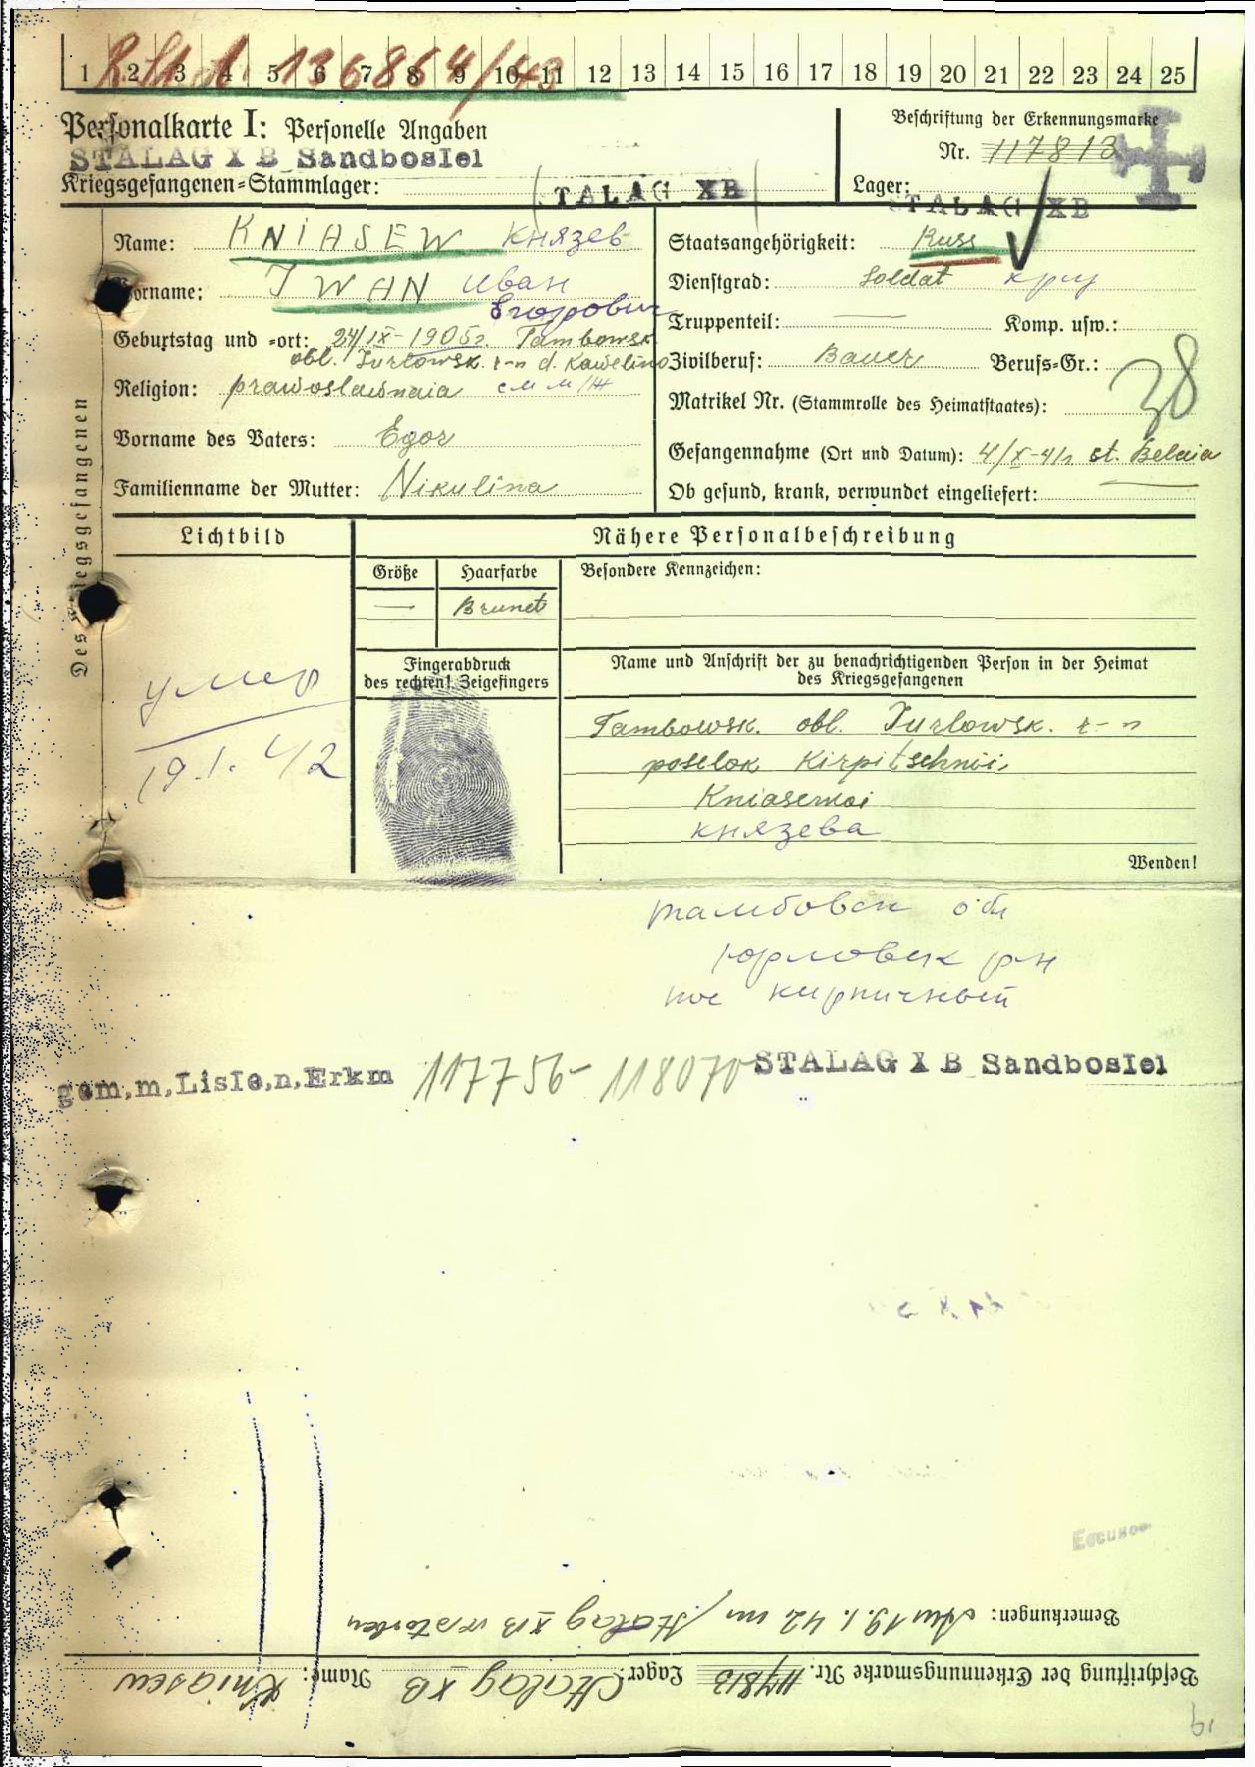 1 2 3 4 5 6 7 8 9 10 11 12 13 14 15 16 17 18 19 20 21 22 23 24 25
136864/43
Personalkarte I: Personelle Angaben
STALAG X B Sandbostel
Kriegsgefangenen-Stammlager: STALAG XB
Beschriftung der Erkennungsmarke
Nr. 117813
Lager: STALAG XB
Des Kriegsgefangenen
Name: KNIASEW Князев
Vorname: IWAN Иван
Егорович
Geburtstag und -ort: 24/IX-1905г. Tambowsk
obl. Iurlowsk. r-n d. Kawelino
Religion: prawoslawnaia см м/ж
Vorname des Vaters: Egor
Familienname der Mutter: Nikulina
Staatsangehörigkeit: Russ
Dienstgrad: Soldat кр-ц
Truppenteil: — Komp. usw.:
Zivilberuf: Bauer Berufs-Gr.:
38
Matrikel Nr. (Stammrolle des Heimatstaates):
Gefangennahme (Ort und Datum): 4/X-41г st. Belaia
Ob gesund, krank, verwundet eingeliefert:
Lichtbild
Nähere Personalbeschreibung
Größe Haarfarbe Besondere Kennzeichen:
— Brunet
Fingerabdruck
des rechten! Zeigefingers
Name und Anschrift der zu benachrichtigenden Person in der Heimat
des Kriegsgefangenen
умер
19.1.42
Tambowsk. obl. Iurlowsk. r-n
poselok Kirpitschnii
Kniasewoi
князева
Wenden!
тамбовск обл
юрловск рн
пос кирпичный
gem,m,Liste,n,Erkm 117756-118070 STALAG X B Sandbostel
Bemerkungen: Am 19.1.42 im Stalag XB verstorben
Beschriftung der Erkennungsmarke Nr. 117813 Lager: Stalag XB Name: Kniasew